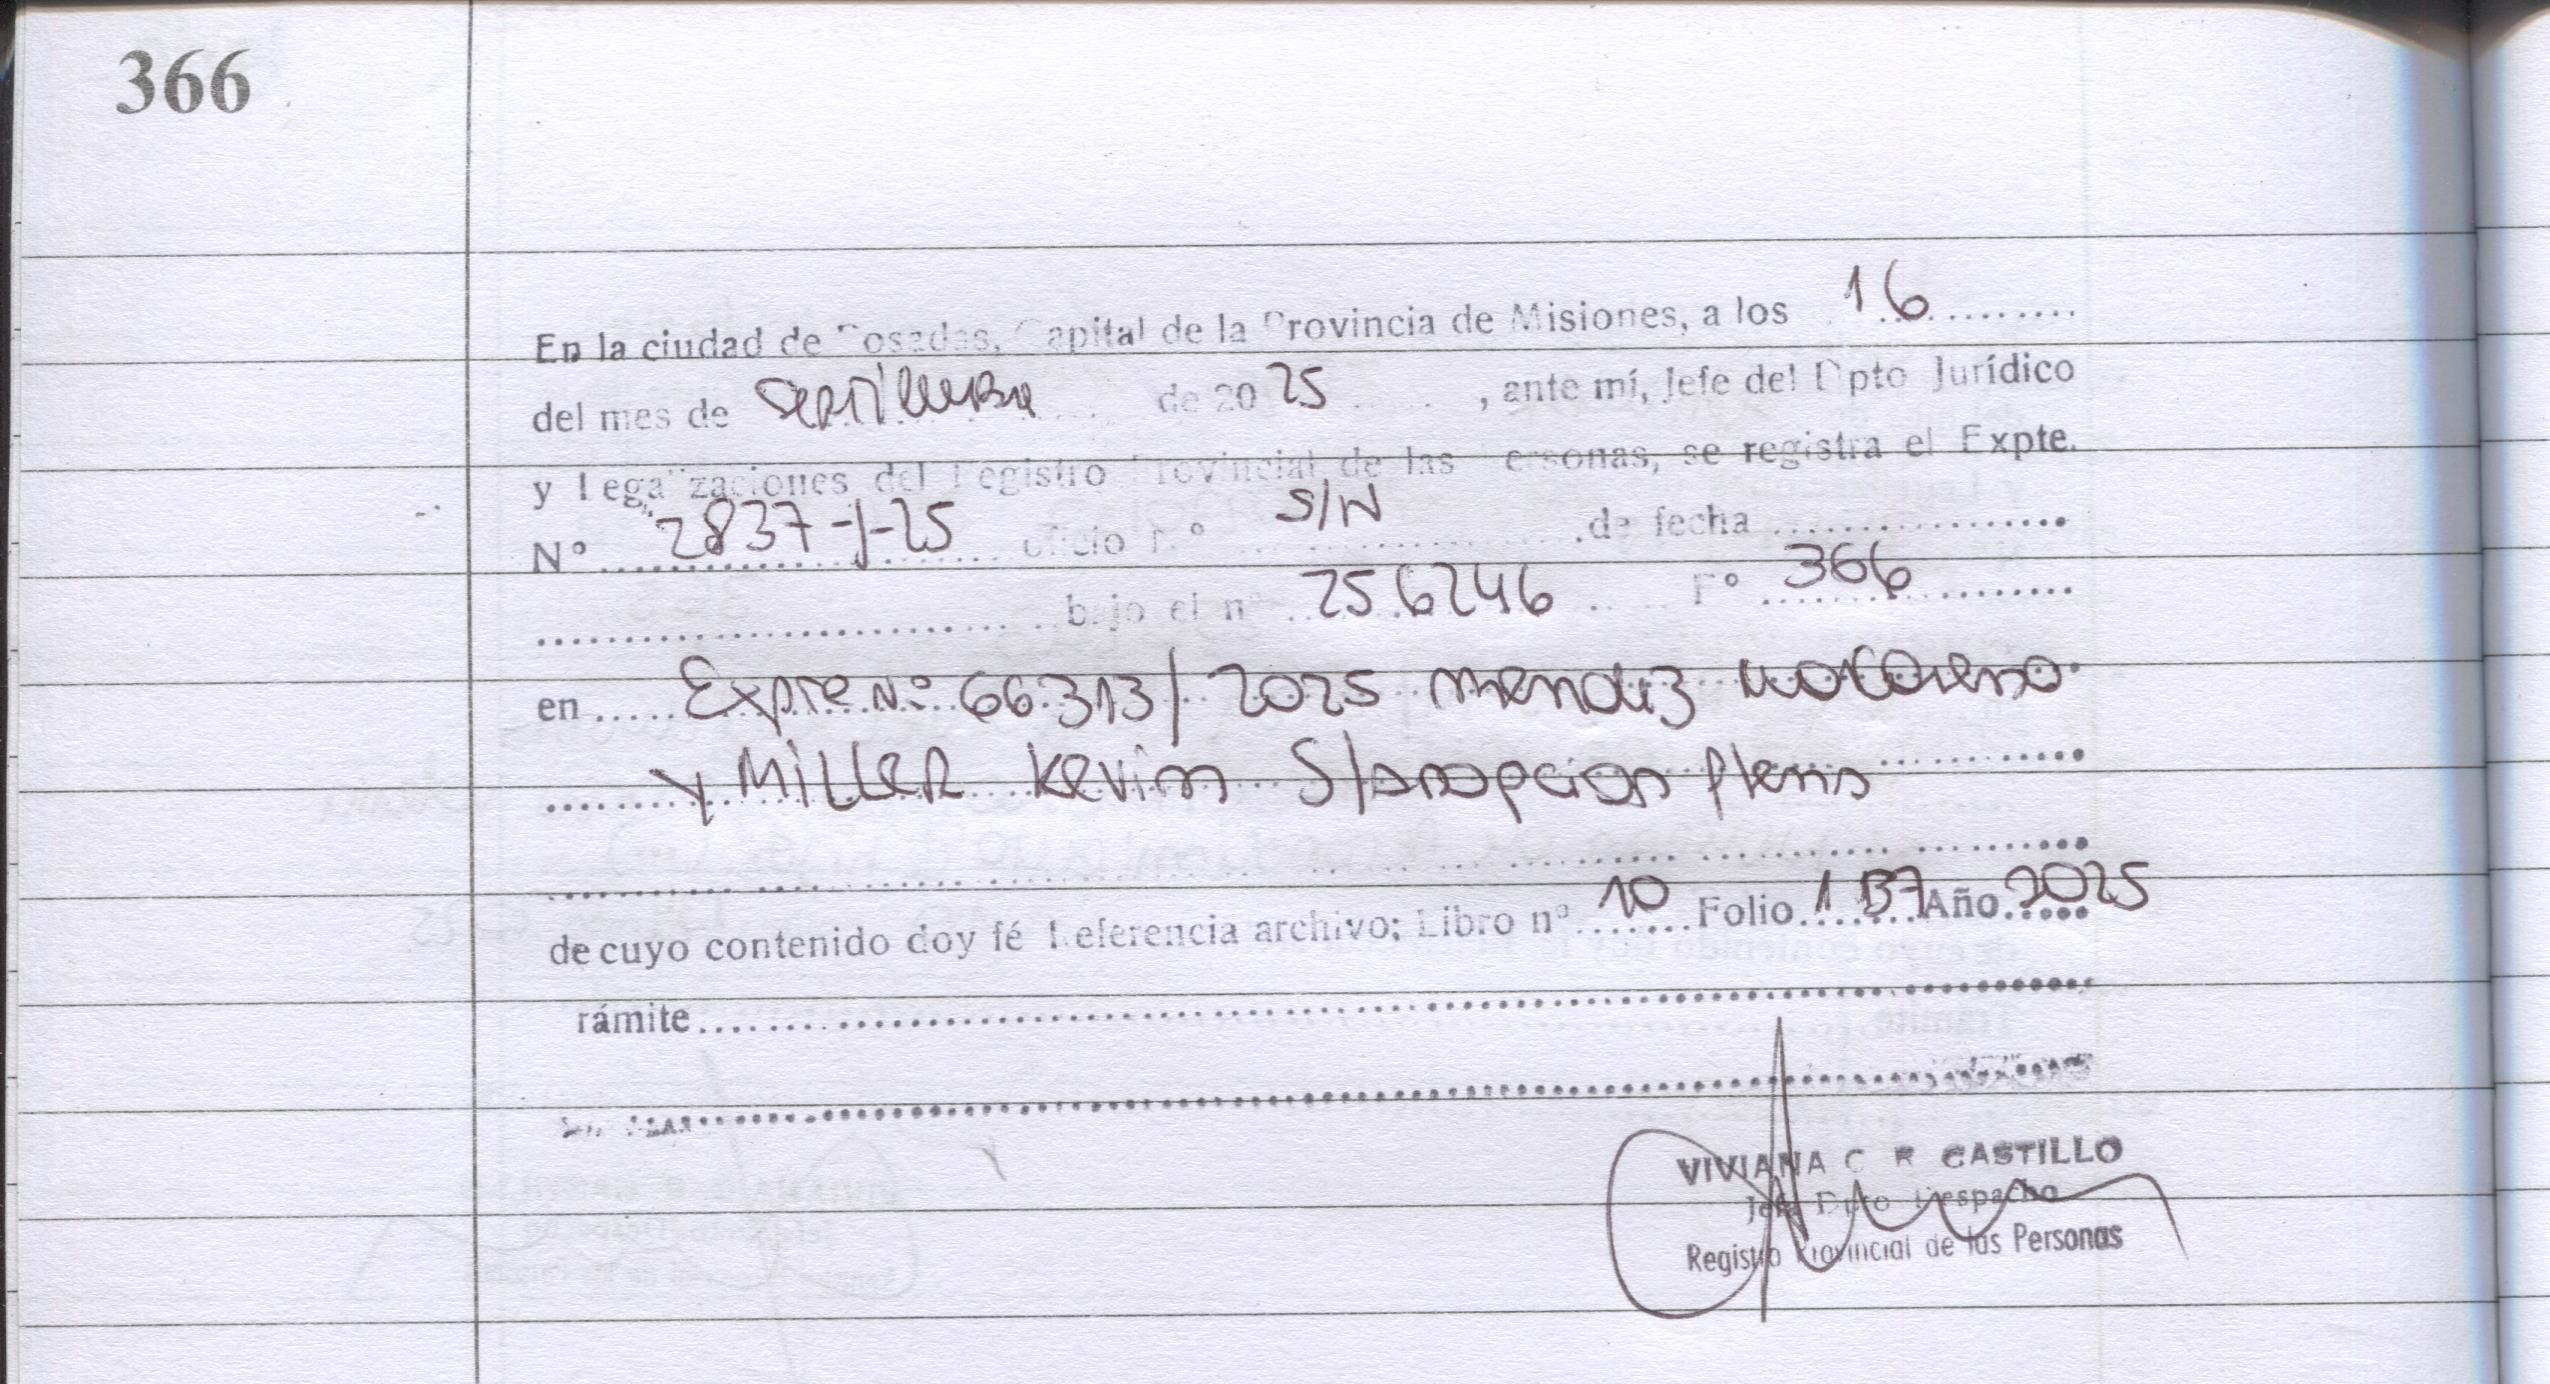 366
En la ciudad de Posadas, Capital de la Provincia de Misiones, a los 16
del mes de septiembre de 2025, ante mí, Jefe del Dpto Jurídico
y Legalizaciones del Registro Provincial de las Personas, se registra el Expte.
N° 2837-J-25 oficio N° S/N de fecha
bajo el n° 256246 F° 366
en Expte N° 66.313/2025 mendez
y MILLER Kevin S/adopcion plena
de cuyo contenido doy fé Referencia archivo; Libro n° 10 Folio 137 Año 2025
rámite
VIVIANA C R CASTILLO
Jefa Dpto Despacho
Registro Provincial de las Personas